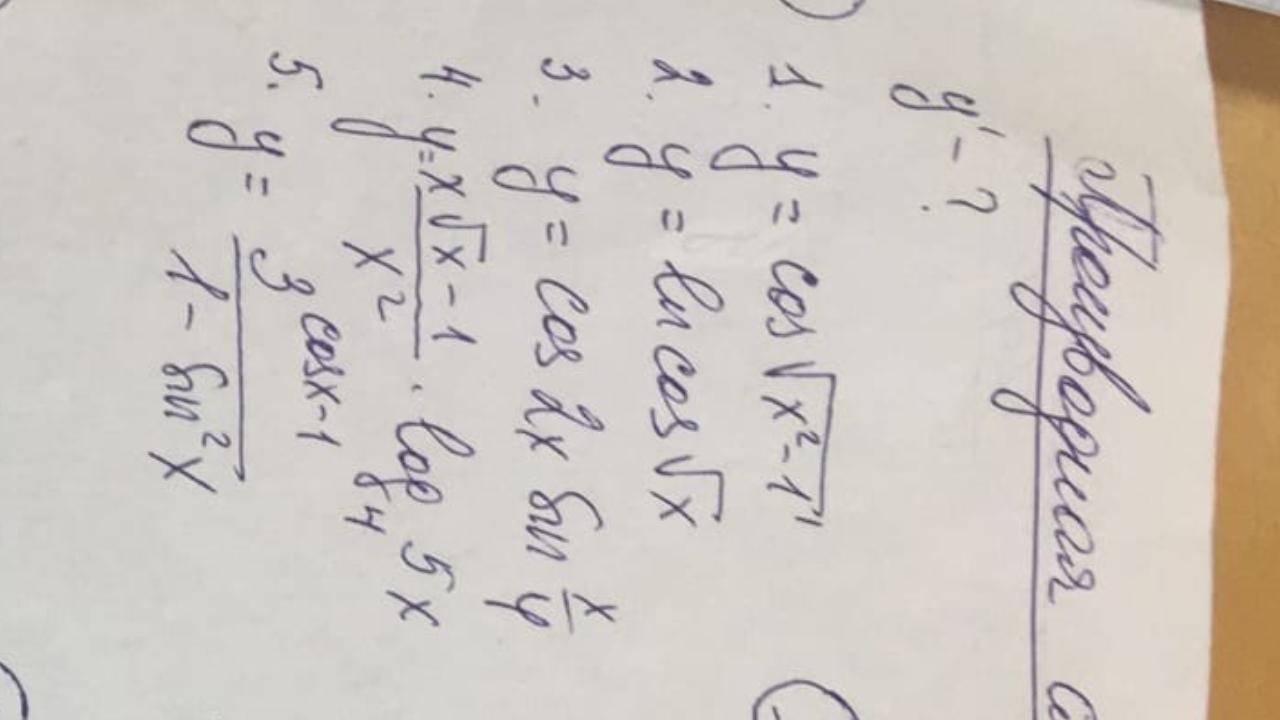 Производная
y' - ?
1. y = cos √(x² - 1)
2. y = ln cos √x
3. y = cos 2x sin x/4
4. y = (x√x - 1)/x² · log₄ 5x
5. y = 3^(cosx-1)/(1 - sin²x)